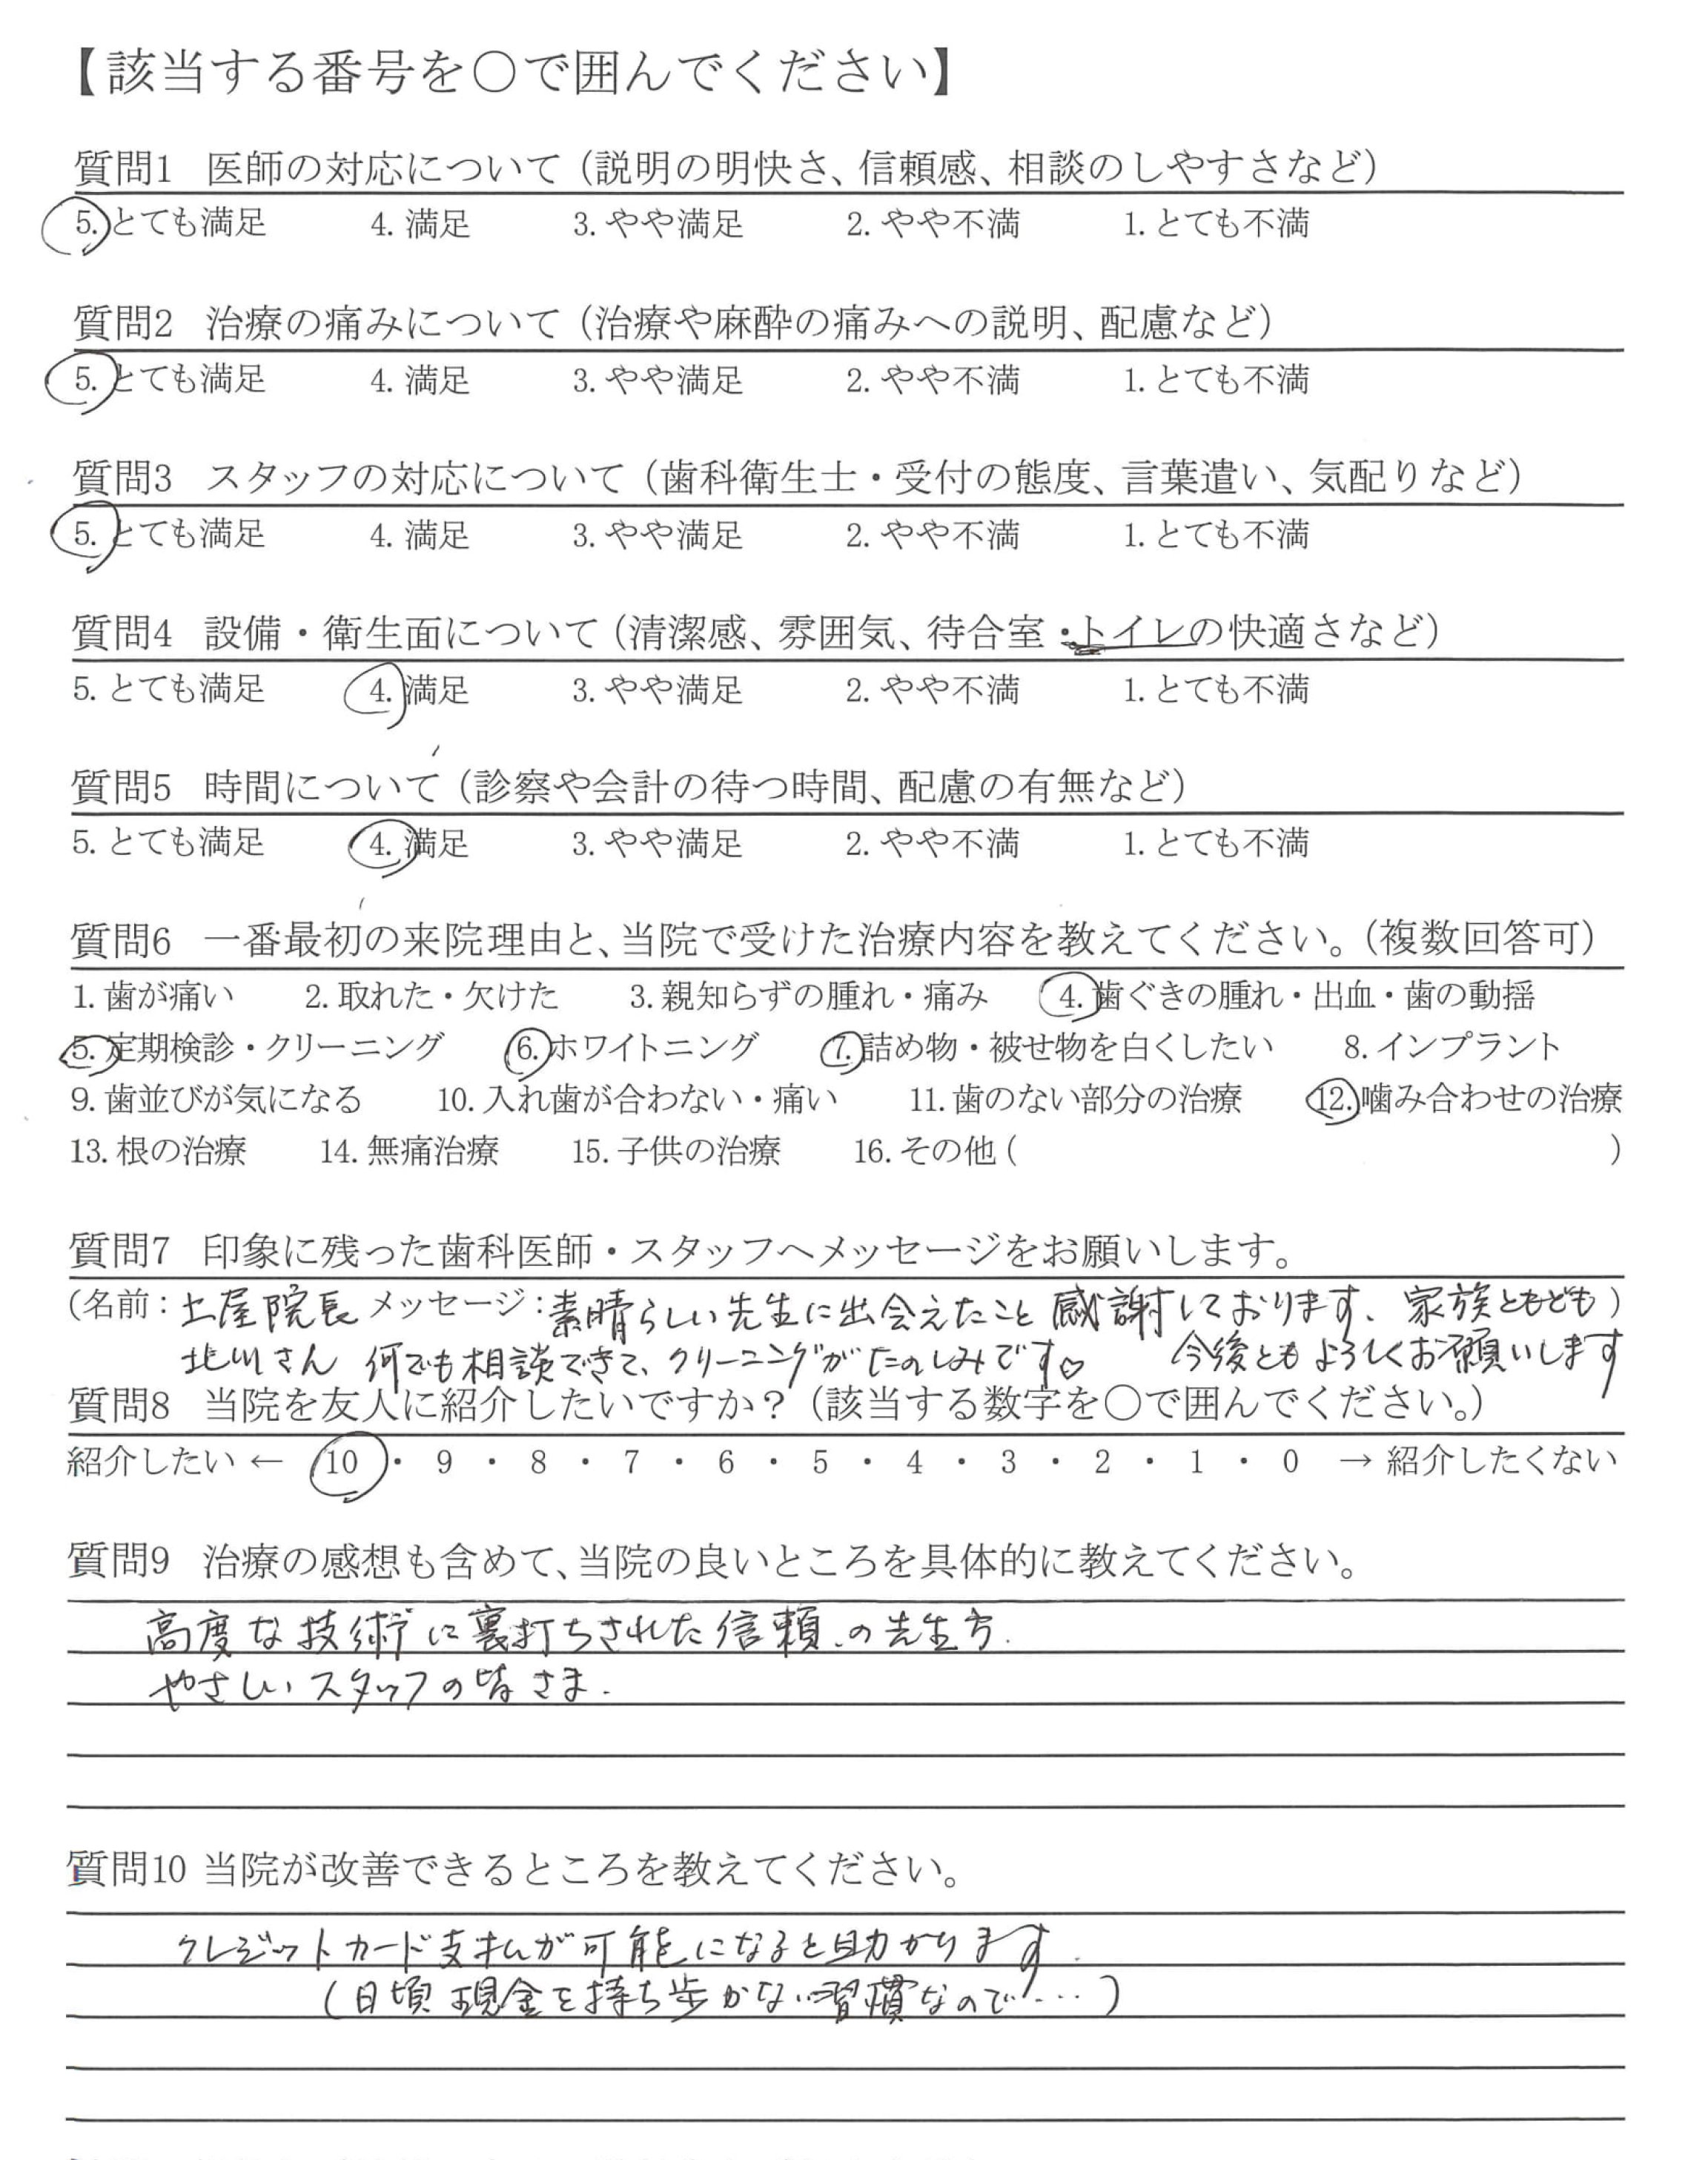 【該当する番号を〇で囲んでください】
質問1 医師の対応について（説明の明快さ、信頼感、相談のしやすさなど）
5. とても満足 4. 満足 3. やや満足 2. やや不満 1. とても不満
質問2 治療の痛みについて（治療や麻酔の痛みへの説明、配慮など）
5. とても満足 4. 満足 3. やや満足 2. やや不満 1. とても不満
質問3 スタッフの対応について（歯科衛生士・受付の態度、言葉遣い、気配りなど）
5. とても満足 4. 満足 3. やや満足 2. やや不満 1. とても不満
質問4 設備・衛生面について（清潔感、雰囲気、待合室・トイレの快適さなど）
5. とても満足 4. 満足 3. やや満足 2. やや不満 1. とても不満
質問5 時間について（診察や会計の待つ時間、配慮の有無など）
5. とても満足 4. 満足 3. やや満足 2. やや不満 1. とても不満
質問6 一番最初の来院理由と、当院で受けた治療内容を教えてください。（複数回答可）
1. 歯が痛い 2. 取れた・欠けた 3. 親知らずの腫れ・痛み 4. 歯ぐきの腫れ・出血・歯の動揺
5. 定期検診・クリーニング 6. ホワイトニング 7. 詰め物・被せ物を白くしたい 8. インプラント
9. 歯並びが気になる 10. 入れ歯が合わない・痛い 11. 歯のない部分の治療 12. 噛み合わせの治療
13. 根の治療 14. 無痛治療 15. 子供の治療 16. その他 ( )
質問7 印象に残った歯科医師・スタッフへメッセージをお願いします。
(名前：土屋院長 メッセージ：素晴らしい先生に出会えたこと感謝しております、家族ともども)
北川さん 何でも相談できて、クリーニングがたのしみです♡ 今後ともよろしくお願いします
質問8 当院を友人に紹介したいですか？（該当する数字を〇で囲んでください。）
紹介したい ← 10 ・ 9 ・ 8 ・ 7 ・ 6 ・ 5 ・ 4 ・ 3 ・ 2 ・ 1 ・ 0 → 紹介したくない
質問9 治療の感想も含めて、当院の良いところを具体的に教えてください。
高度な技術に裏打ちされた信頼の先生方.
やさしいスタッフの皆さま.
質問10 当院が改善できるところを教えてください。
クレジットカード支払が可能になると助かります.
(日頃現金を持ち歩かない習慣なので....)